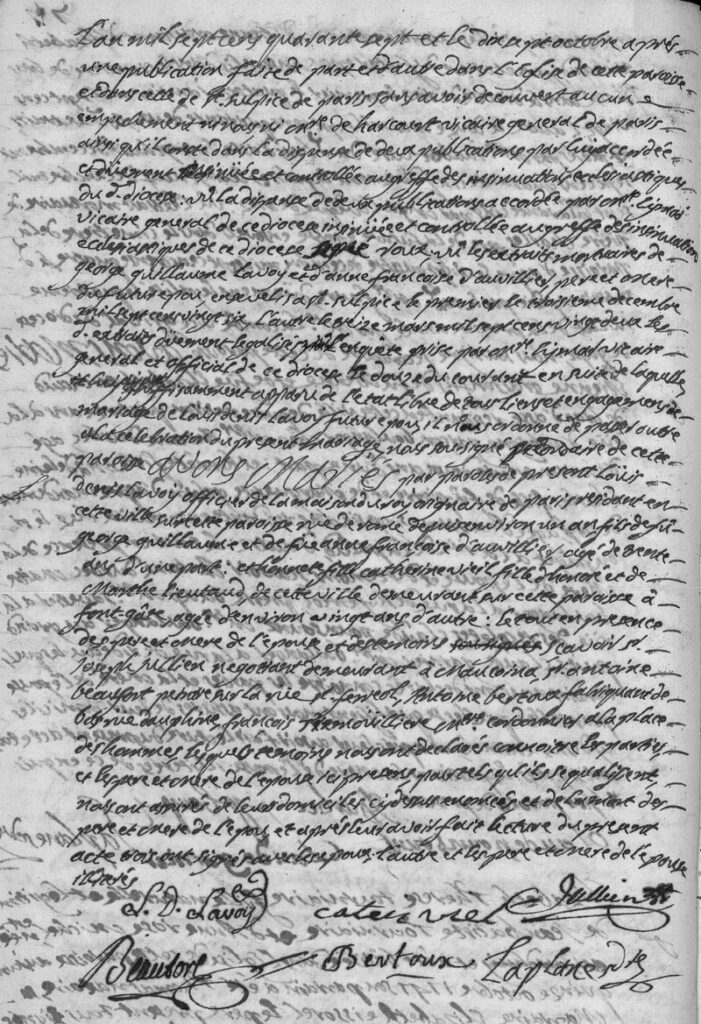 L'an mil sept cens quarante sept et le dix sept octobre après
une publication faite de part et d'autre dans l'Eglise de cette paroisse
et dans celle de St. sulpice de paris sans avoir decouvert aucun
empechement ni nous ni Mre. de harcourt vicaire general de paris
ainsi qu'il conste dans la dispense de deux publications par luy accordée
et düement insinuée et controllée au greffe des insinuations ecclesiastiques
du d. diocese: vu la dispense de deux publications accordée par Mr.
vicaire general de ce diocese insinuée et controllée au greffe des insinuations
ecclesiastiques de ce diocese signé roux. vu les extraits mortuaires de
george guillaume Lavoy et d'anne françoise d'auvillier pere et mere
du futur epoux, ensevelis a St. sulpice le premier le troisieme decembre
mil sept cens vingt six, l'autre le treize mars mil sept cens vingt deux les
d. extraits düement legalisés, vu l'enquete prise par Mr. vicaire
general et official de ce diocese le douze du courant en suite de laquelle
suffisamment apparu de l'etat libre de tous liens et engagemens de
mariage de Louis denis Lavoy futur epoux, il nous ordonne de passer outre
a la celebration du present mariage, nous soussigné de cette
paroisse avons Mariés par paroles de present Loüis
denis Lavoy officier de la maison du roy originaire de paris residant en
cette ville sur cette paroisse rue de rome depuis environ un an fils de fû
george guillaume et de füe anne françoise d'auvillier, agé de trente
ans d'une part: et honnete fille catherine vieil fille d'honoré et de
Marthe lieutaud, de cette ville demeurant sur cette paroisse à
font gâte agée d'environ vingt ans d'autre: le tout en presence
des pere et mere de l'epouse et des temoins scavoir Sr.
joseph jullien negotiant demeurant à Maucoina, Sr. antoine
beaufort peintre sur la rüe St. ferreol, Antoine bertoux fabriquant de
bas rue dauphine, françois Tremouilliere Mtre. cordonnier a la place
des hommes, lesquels temoins nous ont declarés connoitre les parties
et les pere et mere de l'epouse icy presens pour tels qu'ils se qualifient,
nous ont assurés de leurs domiciles cy dessus enoncés et de la mort des
pere et mere de l'epoux, et après leur avoir fait lecture du present
acte trois ont signés avec les epoux. l'autre et les pere et mere de l'epouse
illiterés
L. D. Lavoy cateri viel Jullien
Beaufort Bertoux Laplane